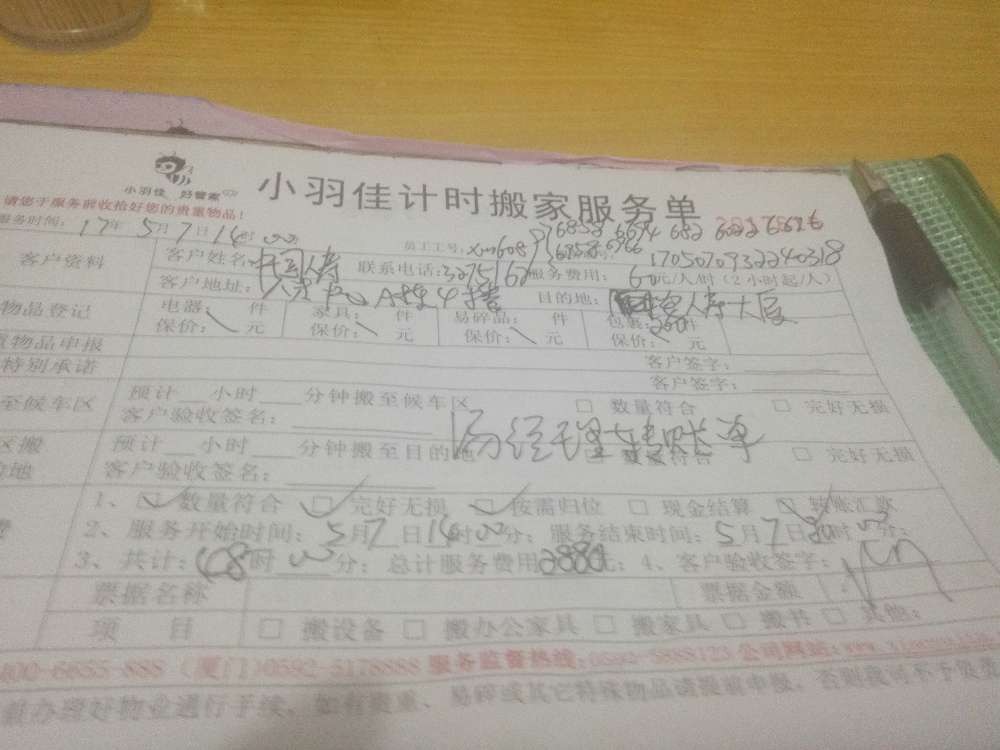 小羽佳 好管家
小羽佳计时搬家服务单
请您于服务前收拾好您的贵重物品!
服务时间: 17年 5月7日14时00 员工工号: xm608
6852 6654 682 6826
1705070932240318
客户资料 客户姓名: 中国人寿 联系电话: 3275162 服务费用: 60元/人/时 (2小时起/人)
客户地址: A栋4楼 目的地: 人寿大厦
物品登记 电器: 件 家具: 件 易碎品: 件 包装: 件
保价: 元 保价: 元 保价: 元 保价: 元
物品申报 客户签字:
特别承诺 客户签字:
至候车区 预计 小时 分钟搬至候车区 □ 数量符合 □ 完好无损
客户验收签名:
汤经理转账单
区搬 预计 小时 分钟搬至目的地 □ 数量符合 □ 完好无损
地 客户验收签名:
1、□ 数量符合 □ 完好无损 □ 按需归位 □ 现金结算 □ 转账汇款
2、服务开始时间: 5月7日14时00分; 服务结束时间: 5月7日20时00分;
3、共计: 48时00分; 总计服务费用2880元; 4、客户验收签字:
票据名称 票据金额
项 目 □ 搬设备 □ 搬办公家具 □ 搬家具 □ 搬书 □ 其他:
400-6655-888 (厦门)0592-5178888 服务监督热线:0592-5888123 公司网站:www.
前办理好物业通行手续, 如有贵重、易碎或其它特殊物品请提前申报, 否则我司不予负责